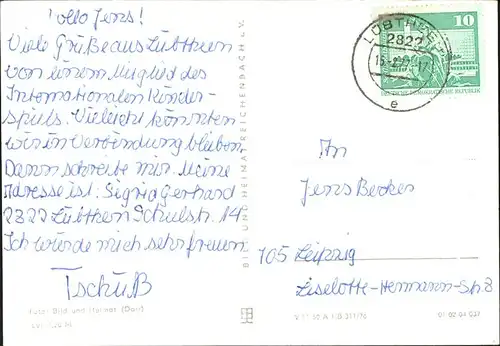 Hallo Jens!
Viele Grüße aus Lübtheen
von einem Mitglied des
Internationalen Kinder-
spuls. Vieleicht könnten
wir in Verbindung bleiben.
Dann schreibe mir. Meine
Adresse ist: Sigrid Gerhard
2822 Lübtheen Schulstr. 14
Ich würde mich sehr freuen
Tschüß
Foto: Bild und Heimat (Darr)
BILD UND HEIMAT REICHENBACH I. V.
LÜBTHEEN
2822
e
10
DEUTSCHE DEMOKRATISCHE REPUBLIK
An
Jens Becker
705 Leipzig
Liselotte-Hermann-Str. 8
01 02 04 037